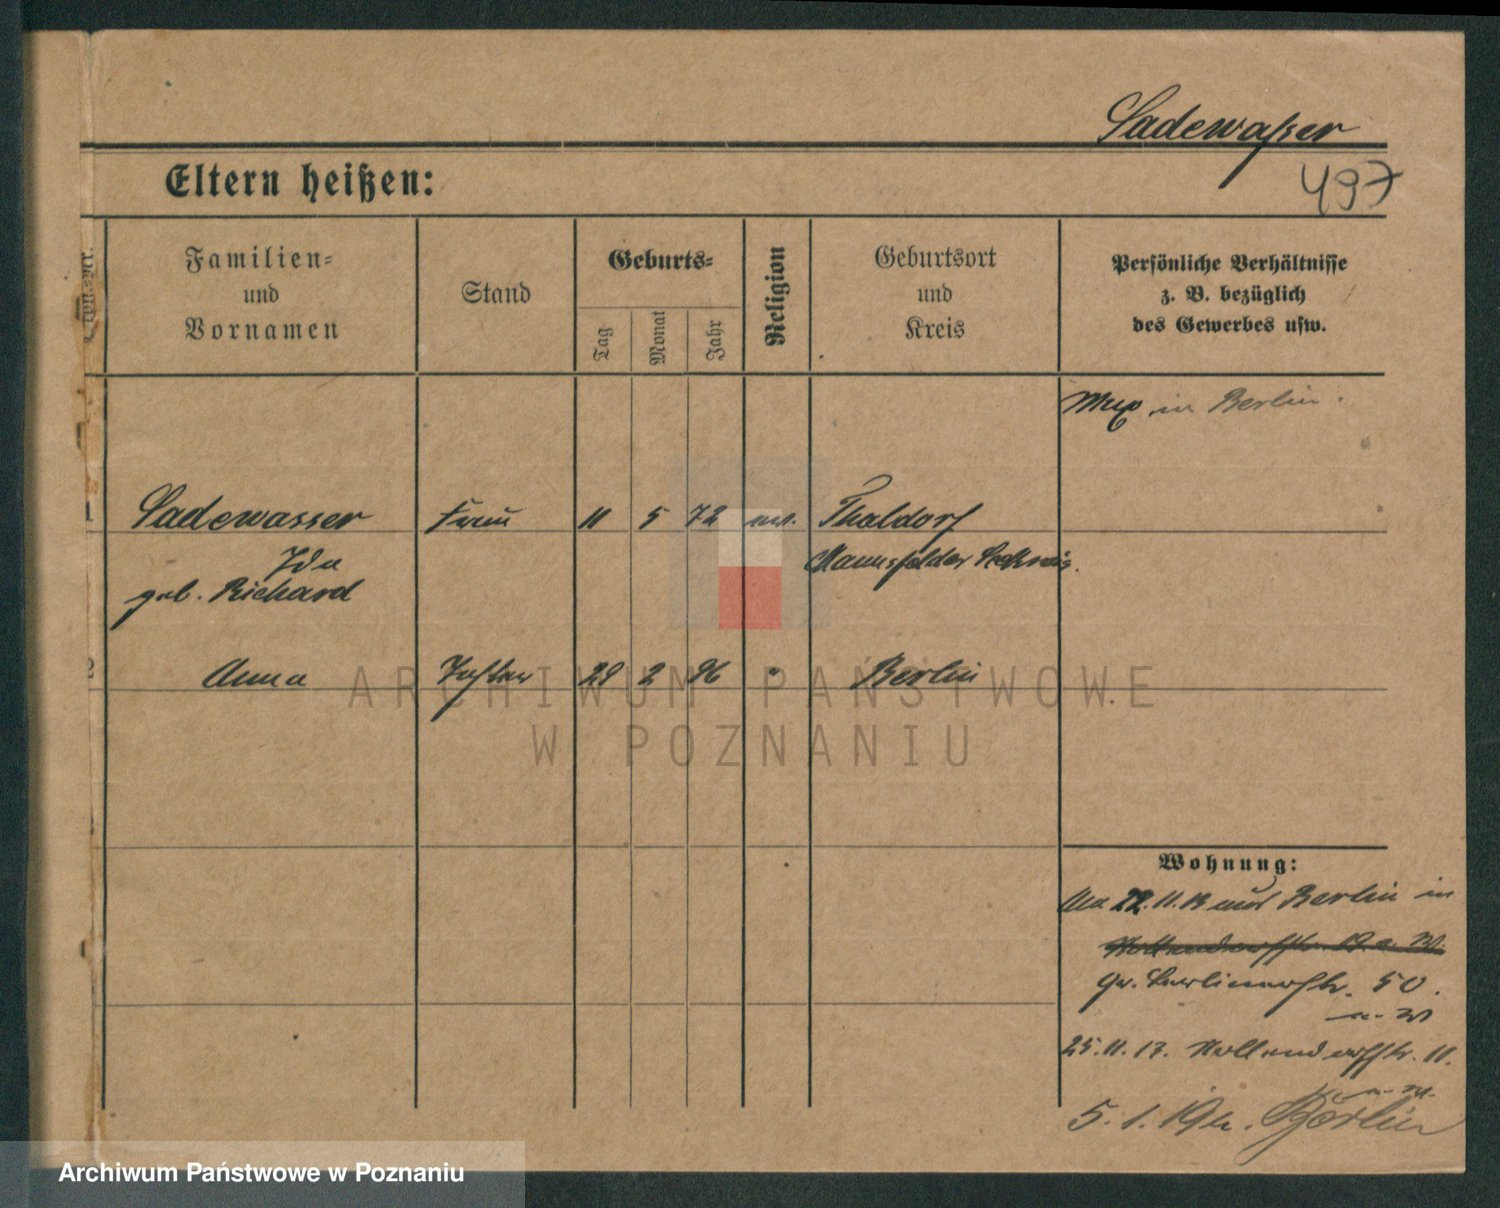 Sadewaßer
497
Eltern heißen:
Familien-
und
Vornamen
Stand
Geburts-
Tag
Monat
Jahr
Religion
Geburtsort
und
Kreis
Persönliche Verhältnisse
z. B. bezüglich
des Gewerbes usw.
in Berlin.
1 Sadewasser Frau 11 5 72 ev. Thaldorf
Ida Mansfelder Seekreis.
geb. Richard
2 Anna Tochter 29 2 96 " Berlin
ARCHIWUM PAŃSTWOWE
W POZNANIU
Wohnung:
22.11.13 aus Berlin in
Gr. Berlinerstr. 50.
25.11.17. Hollendorffstr. 11.
5.1.19 n. Berlin
Archiwum Państwowe w Poznaniu